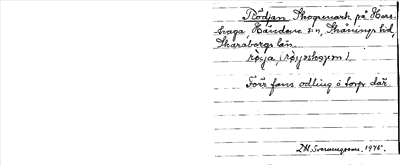 Rödjan Skogsmark på Hors-
haga, Händene s:n, Skånings hd,
Skaraborgs län.
röja, (røjsskogen).
Förr fans odling o torp där.
J.M. Svenningsson. 1945.